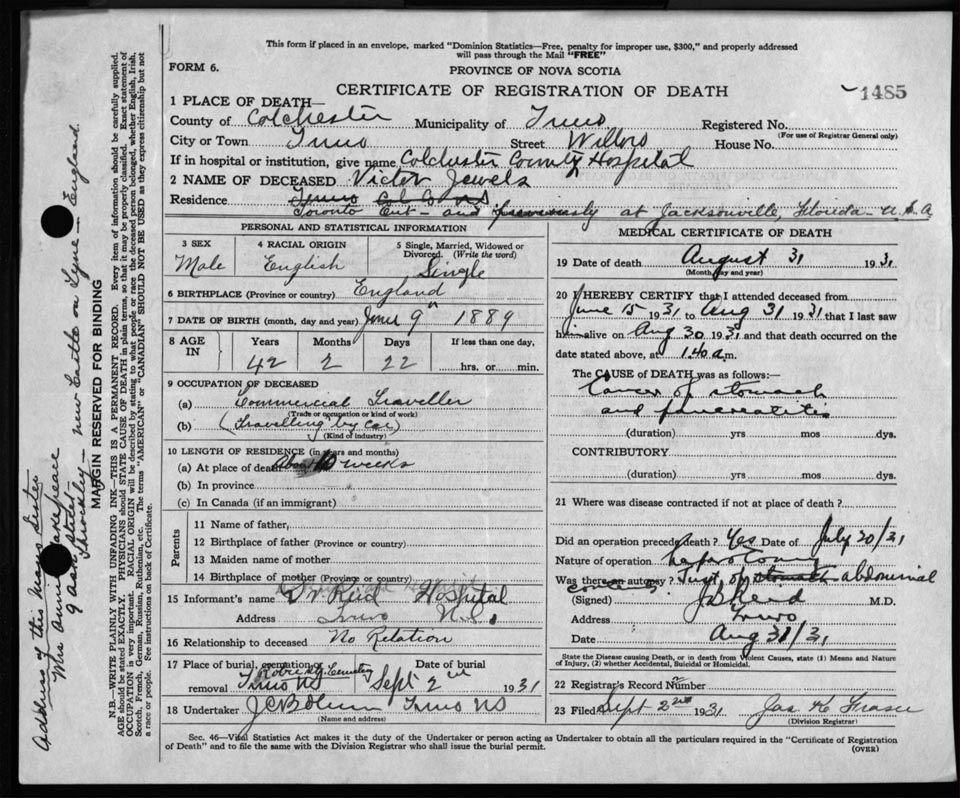 This form if placed in an envelope, marked "Dominion Statistics—Free, penalty for improper use, $300," and properly addressed
will pass through the Mail "FREE"
FORM 6.
PROVINCE OF NOVA SCOTIA
CERTIFICATE OF REGISTRATION OF DEATH
1485
1 PLACE OF DEATH—
County of Colchester Municipality of Truro Registered No.
(For use of Registrar General only)
City or Town Truro Street Willow House No.
If in hospital or institution, give name Colchester County Hospital
2 NAME OF DECEASED Victor Jewels
Residence Truro Col Co NS
Toronto Ont - and previously at Jacksonville, Florida - U.S.A
PERSONAL AND STATISTICAL INFORMATION
3 SEX 4 RACIAL ORIGIN 5 Single, Married, Widowed or Divorced. (Write the word)
Male English Single
6 BIRTHPLACE (Province or country) England
7 DATE OF BIRTH (month, day and year) June 9th 1889
8 AGE IN Years Months Days If less than one day,
42 2 22 hrs. or min.
9 OCCUPATION OF DECEASED
(a) Commercial Traveller
(Trade or occupation or kind of work)
(b) (Travelling by car)
(Kind of Industry)
10 LENGTH OF RESIDENCE (in years and months)
(a) At place of death About 10 weeks
(b) In province
(c) In Canada (if an immigrant)
Parents
11 Name of father,
12 Birthplace of father (Province or country)
13 Maiden name of mother
14 Birthplace of mother (Province or country)
15 Informant's name Dr Reid Hospital
Address Truro N.S.
16 Relationship to deceased No Relation
17 Place of burial, cremation or removal Robie St. Cemetery Truro NS
Date of burial Sept 2nd 1931
18 Undertaker Truro NS
(Name and address)
MEDICAL CERTIFICATE OF DEATH
19 Date of death August 31 1931
(Month, day and year)
20 I HEREBY CERTIFY that I attended deceased from
June 15 1931 to Aug 31 1931 that I last saw
him alive on Aug 30 1931 and that death occurred on the
date stated above, at 1.40 a.m.
The CAUSE of DEATH was as follows:—
Cancer of stomach
and pancreatitis
(duration) yrs mos dys.
CONTRIBUTORY
(duration) yrs mos dys.
21 Where was disease contracted if not at place of death?
Did an operation precede death? Yes Date of July 20/31
Nature of operation
Was there an autopsy? of stomach abdominal
contents
(Signed) M.D.
Address Truro
Date Aug 31/31
State the Disease causing Death, or in death from Violent Causes, state (1) Means and Nature of Injury, (2) whether Accidental, Suicidal or Homicidal.
22 Registrar's Record Number
23 Filed Sept 2nd 1931 Jas K Fraser
(Division Registrar)
Sec. 46—Vital Statistics Act makes it the duty of the Undertaker or person acting as Undertaker to obtain all the particulars required in the "Certificate of Registration
of Death" and to file the same with the Division Registrar who shall issue the burial permit.
(OVER)
MARGIN RESERVED FOR BINDING
N.B.—WRITE PLAINLY WITH UNFADING INK—THIS IS A PERMANENT RECORD. Every item of information should be carefully supplied.
AGE should be stated EXACTLY. PHYSICIANS should STATE CAUSE OF DEATH in plain terms, so that it may be properly classified. Exact statement of
OCCUPATION is very important. RACIAL ORIGIN will be described by stating to what people or race the deceased person belonged, whether English, Irish,
Scotch, French, German, Russian, Ruthenian, etc. The terms "AMERICAN" or "CANADIAN" SHOULD NOT BE USED as they express citizenship but not
a race or people. See instructions on back of Certificate.
Address of this mans Sister
Mrs Annie Makepeace
9 Oak Street
Throckley - New Castle on Tyne - England.